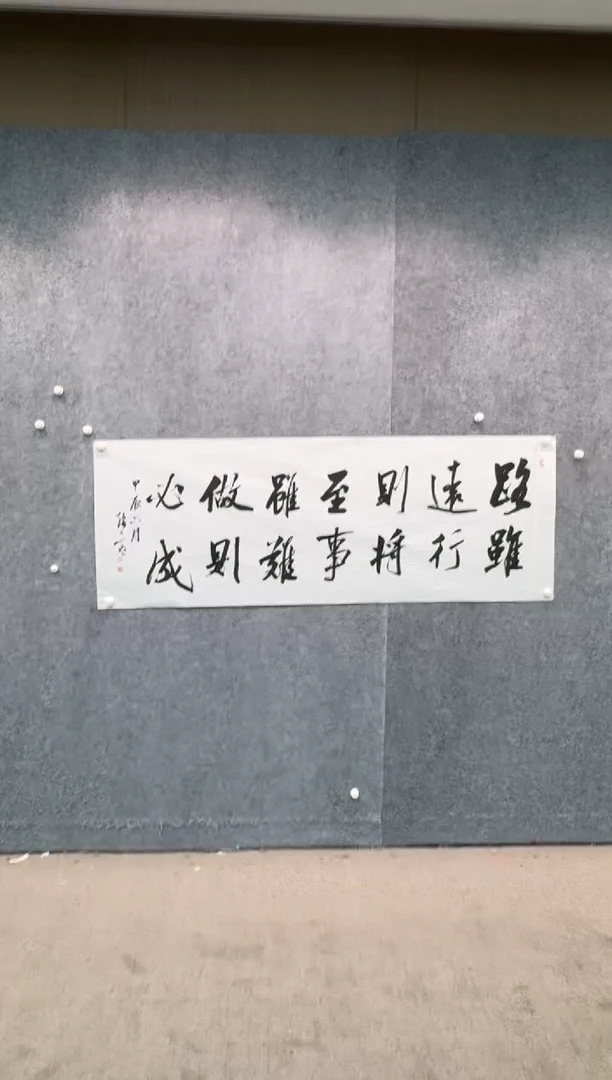 路雖
遠行
則將
至事
雖難
做則
必成
甲辰六月